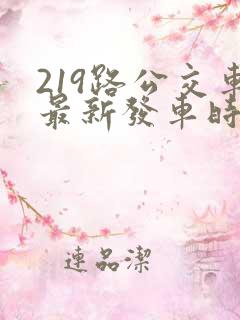 219路公交車
最新發車時
連品潔